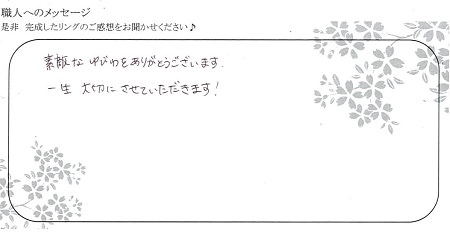 職人へのメッセージ
是非 完成したリングのご感想をお聞かせください♪
素敵な ゆびわをありがとうございます.
一生 大切に させていただきます!